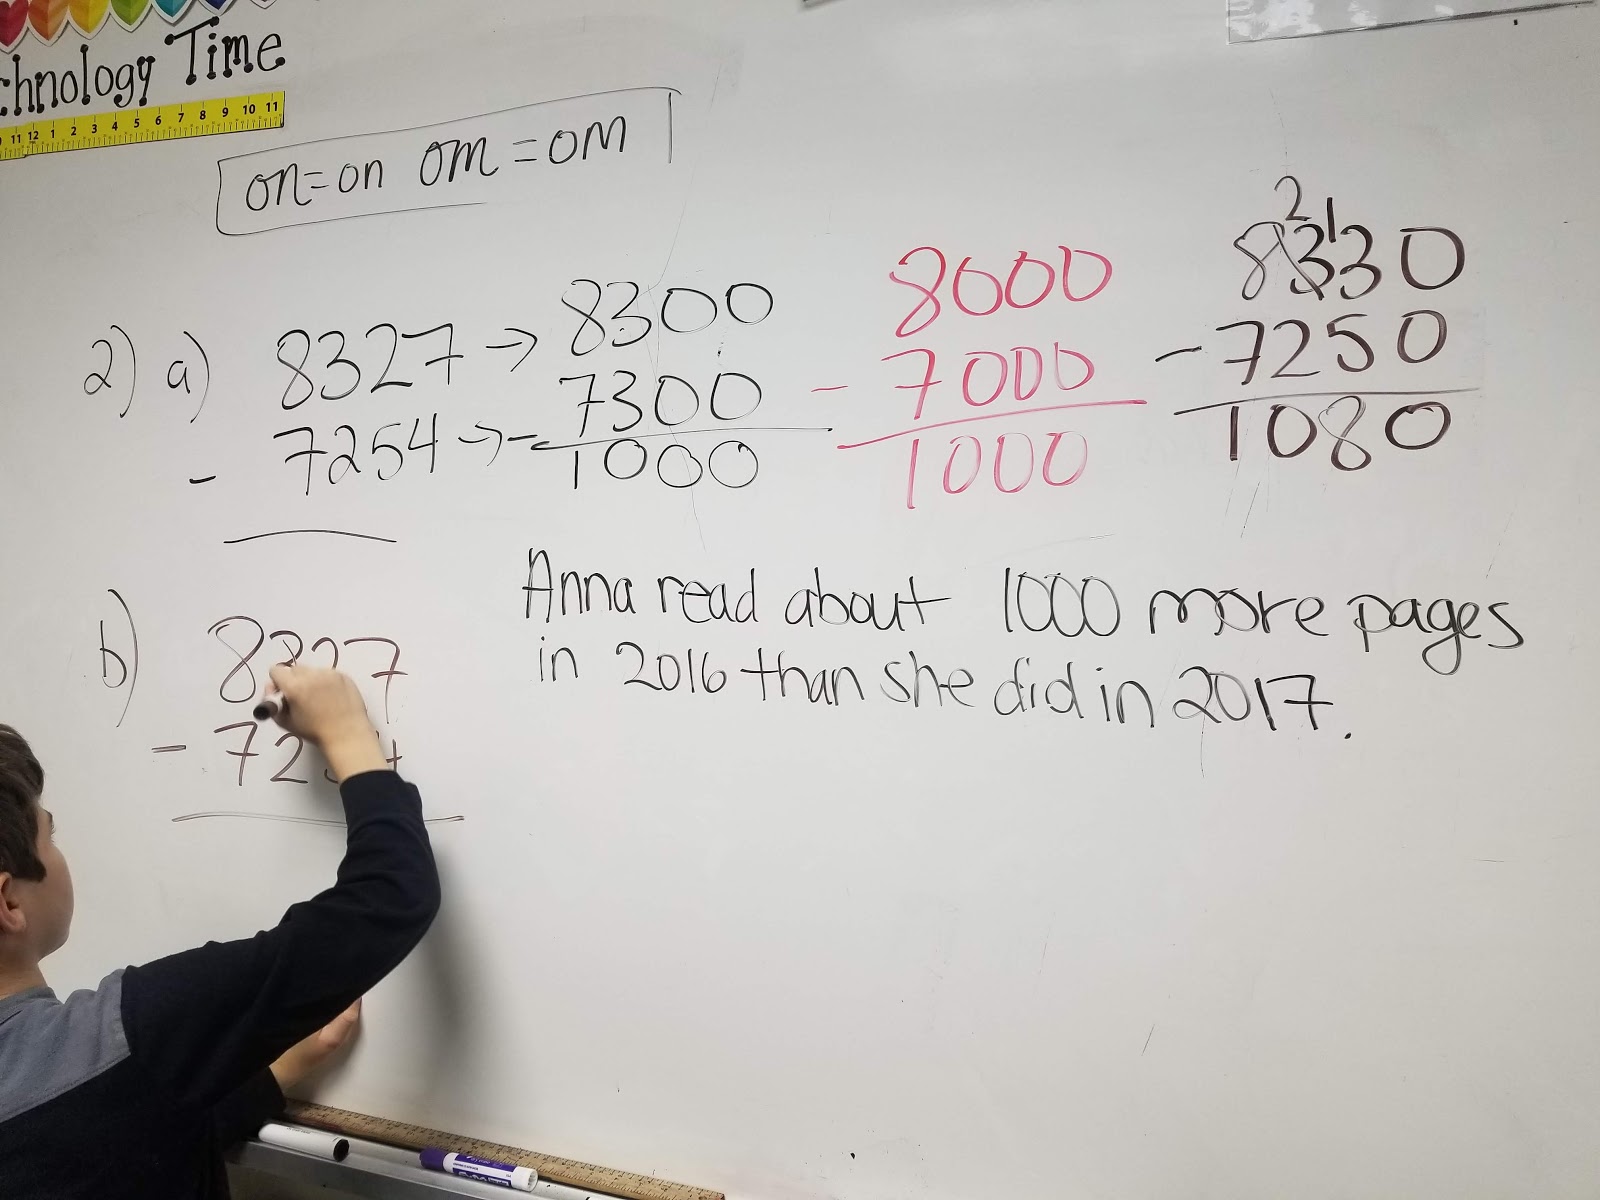 chnology Time
11 12 1 2 3 4 5 6 7 8 9 10 11
on=on om=om
2) a) 8327 → 8300
- 7254 → - 7300
1000
8000
- 7000
1000
2 1
8330
- 7250
1080
Anna read about 1000 more pages
in 2016 than she did in 2017.
b) 8327
- 72 4